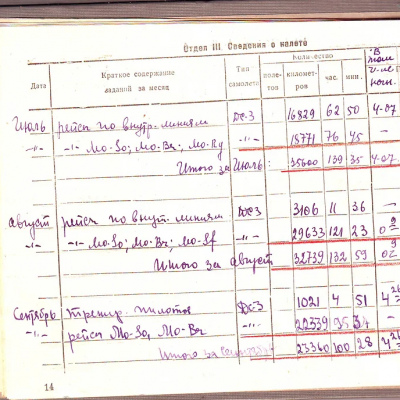 Отдел III Сведения о налете
Дата Краткое содержание заданий за месяц Тип самолета Количество поле-тов километ-ров час. мин. В том числе ноч.
Июль рейсы по внутр. линиям Дс-3 16829 62 50 4-07
-"- -"- Мо-So; Мо-Be; Мо-Rg -"- 18771 76 45 -
Итого за Июль: 35600 139 35 4-07
Август рейсы по внут. линиям Дс3 3106 11 36 -
-"- -"- Мо-So; Мо-Br; Мо-Sf -"- 29633 121 23 0
Итого за август 32739 132 59 0
Сентябрь тренир. пилотов Дс-3 1021 4 51 4 26
-"- рейсы Мо-So, Мо-Be -"- 22339 95 37 -
Итого за Сентябрь 23360 100 28 4 26
14